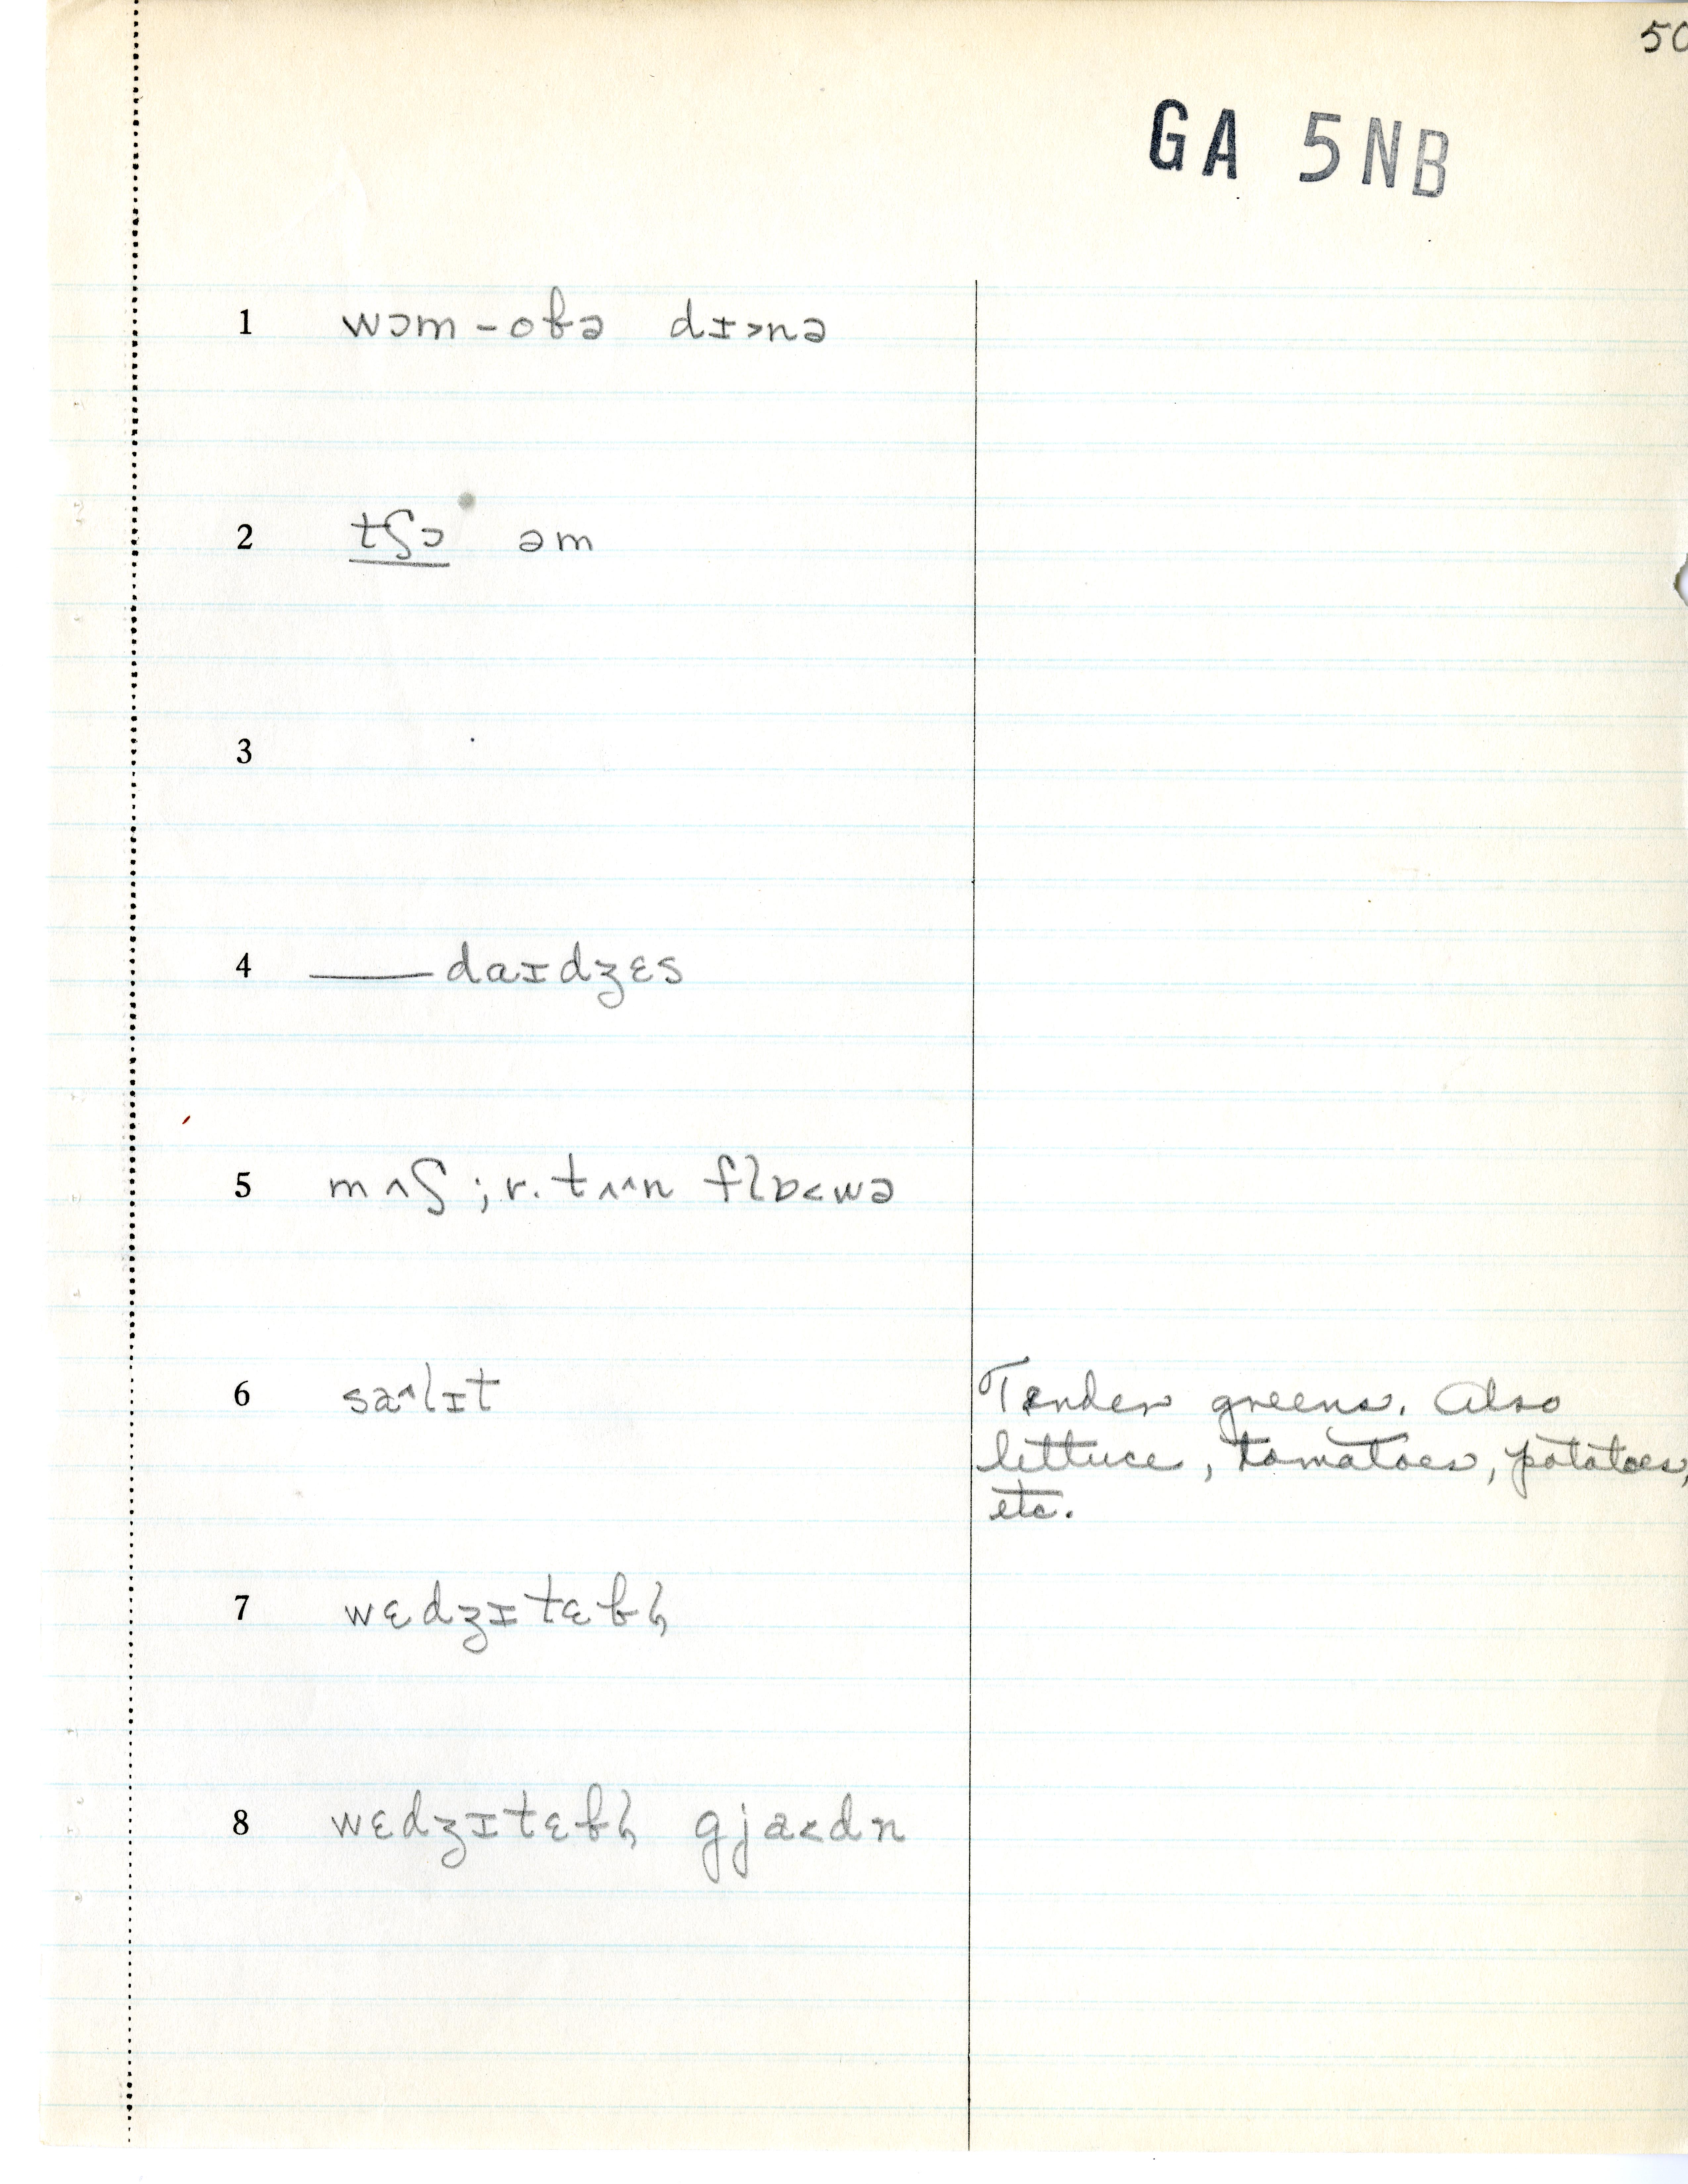 50
GA 5NB
1 wɔm-obə dɪ>nə
2 tʃɔ əm
3
4 —— daɪdʒɛs
5 mʌʃ; r. tʌ^n flɒ<wə
6 sa^lɪt Tender greens. Also
lettuce, tomatoes, potatoes,
etc.
7 wɛdʒɪtɛbl̩
8 wɛdʒɪtɛbl̩ gja<dn